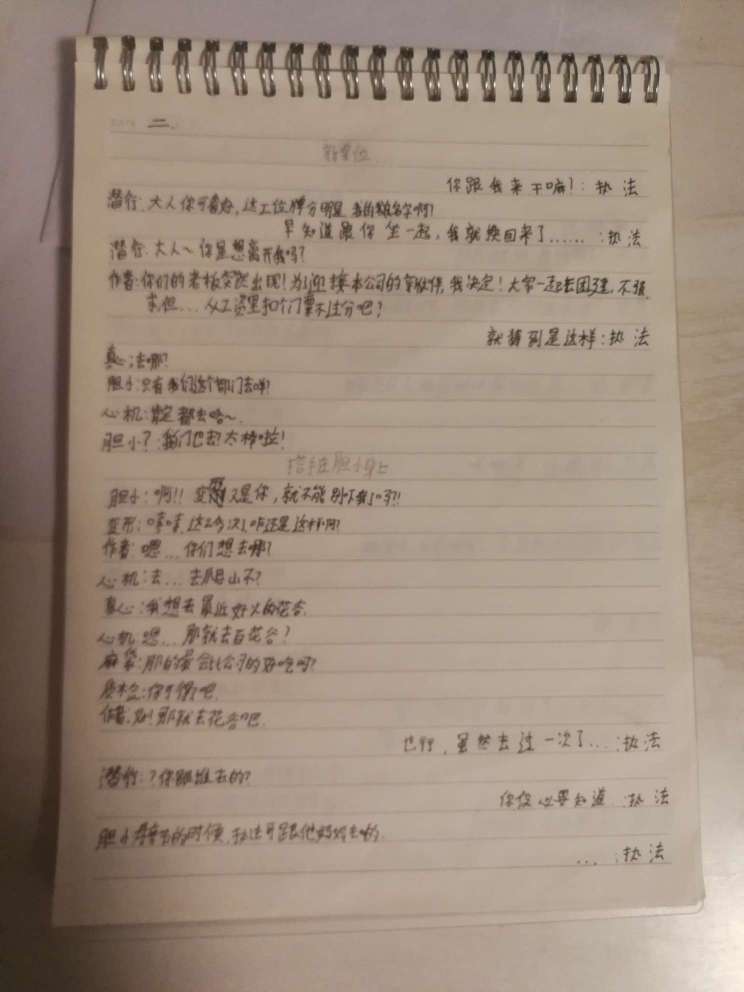 二、
你跟我来干嘛！：执法
潜行：大人你可看好，这工位牌分明是 我的数名字啊？
早知道跟你坐一起，我就换回来了……：执法
潜行：大人～你是想离开我吗？
作者：你们的老板突然出现！为了迎接本公司的 我决定！大家一起去团建，不强
求但…从工资里扣个门票不过分吧？
就猜到是这样：执法
真心：去哪？
胆小：只有我们这个部门去咩？
心机：肯定都去哈～
胆小？：部门也去？太棒啦！
搭手在胆小身上
胆小：啊！！变形又是你，就不能别吓我了吗？！
变形：嘻嘻，这么多次了，咋还是这样啊？
作者：嗯…你们想去哪？
心机：去…去爬山不？
真心：我想去最近好火的花谷。
心机：嗯…那就去百花谷？
麻袋：那的蛋会比公司的好吃吗？
质检：你可得吧。
作者：别！那就去花谷吧。
也行，虽然去过一次了…：执法
潜行：？你跟谁去的？
你没必要知道…：执法
胆小 的时候，执法可是跟他妈妈去的。
…：执法